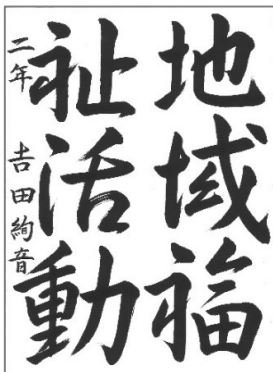 地域福
祉活動
二年 吉田絢音